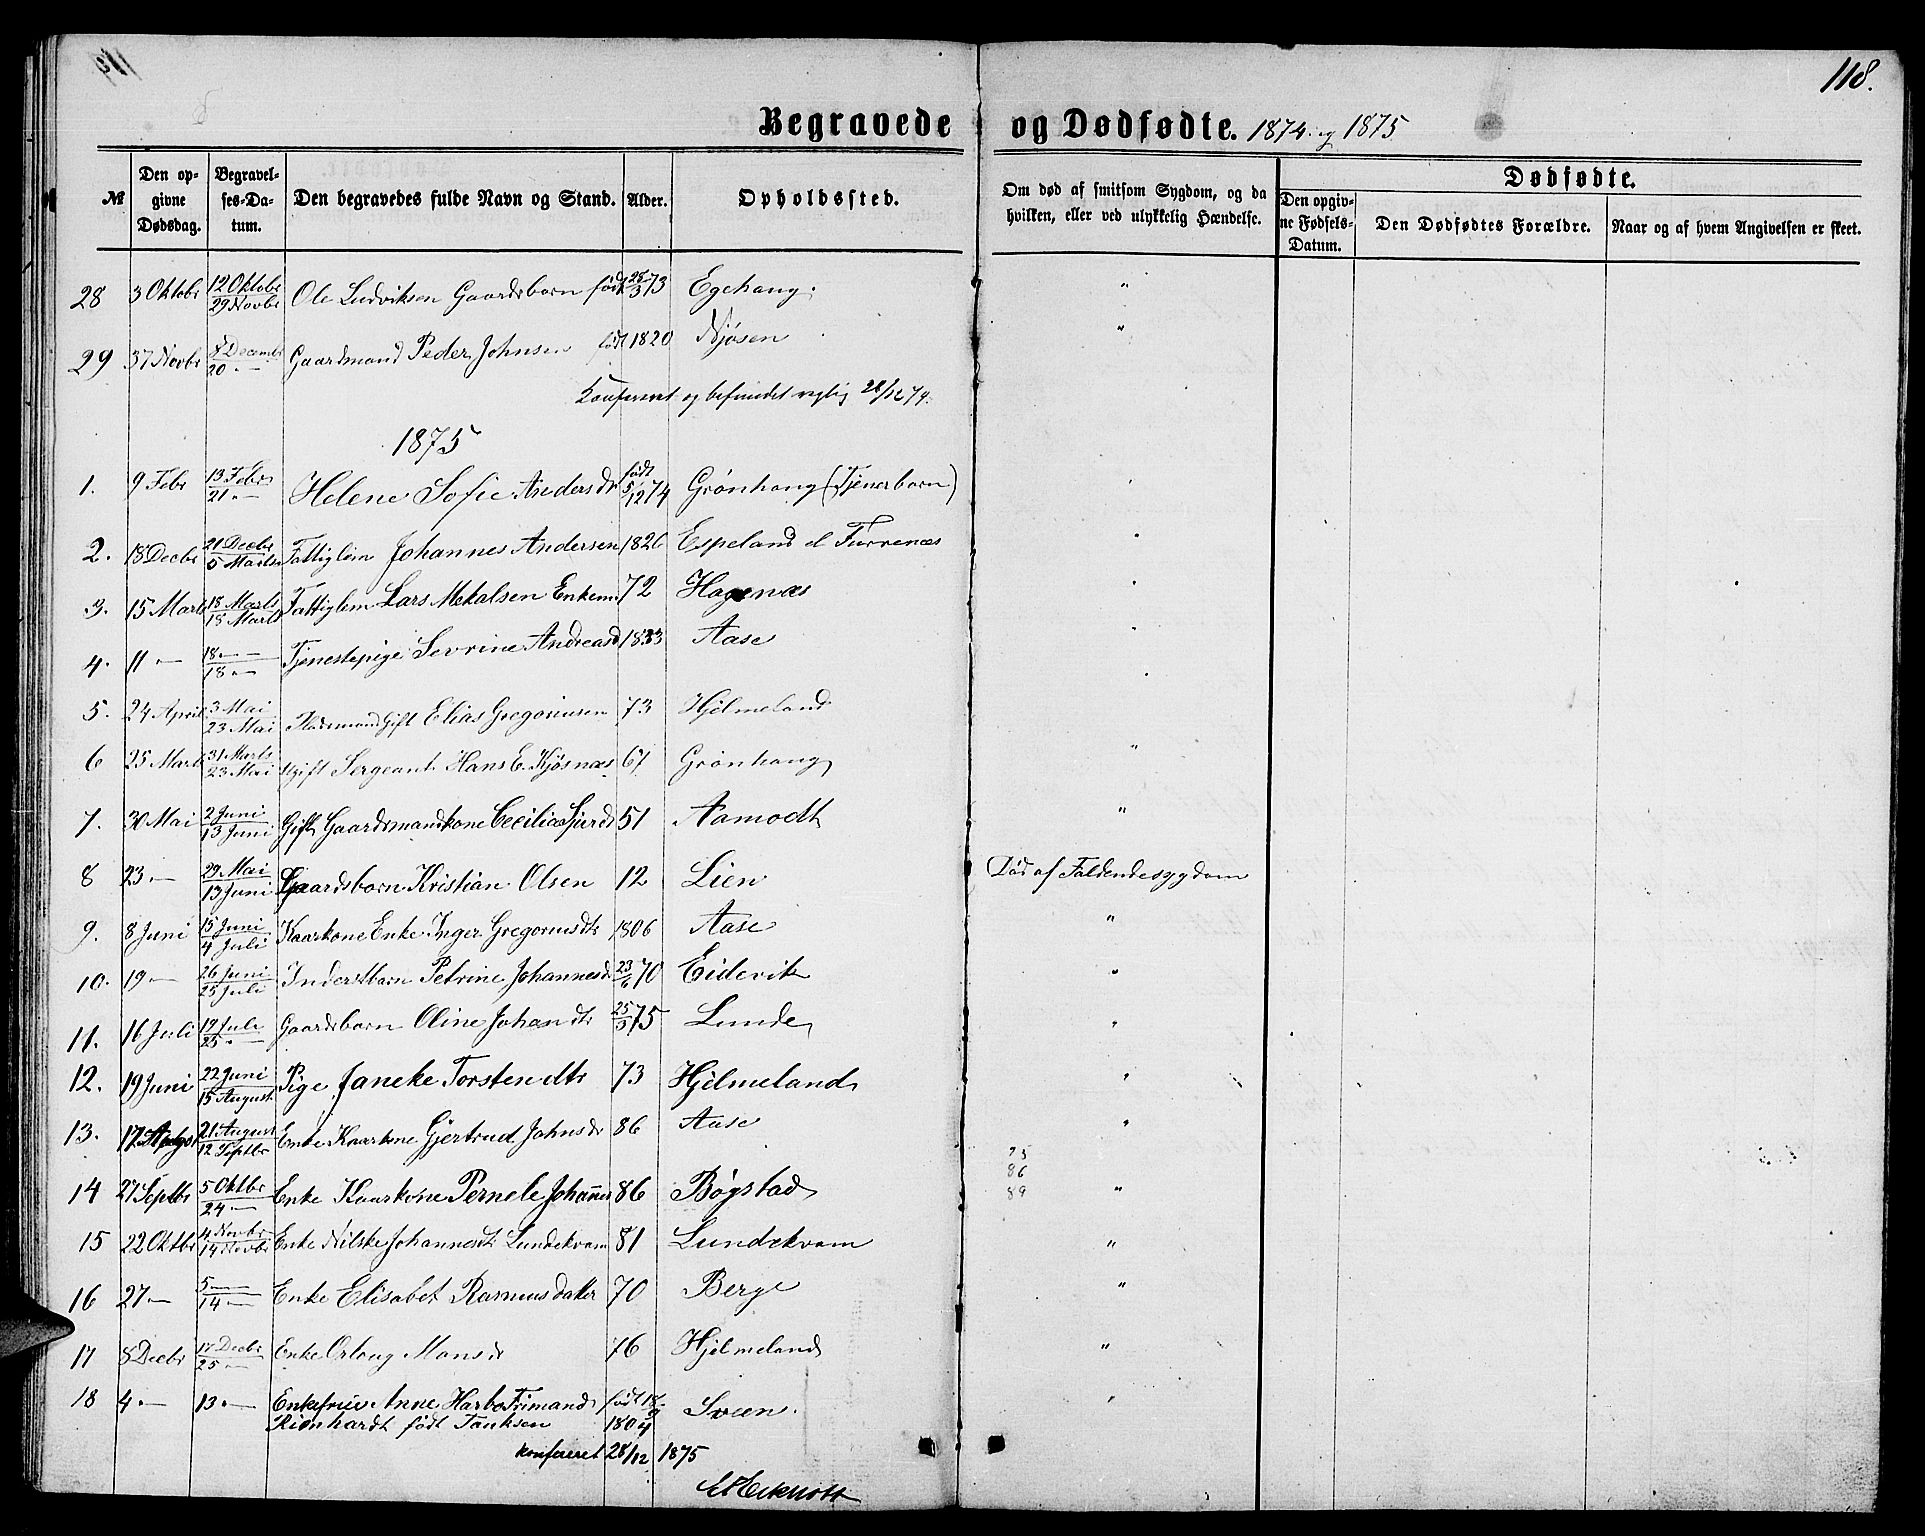 118.
Begravede og Dødfødte. 1874 og 1875
№
Den opgivne Dødsdag.
Begravelses-Datum.
Den begravedes fulde Navn og Stand.
Alder.
Opholdssted.
Om død af smitsom Sygdom, og da hvilken, eller ved ulykkelig Hændelse.
Dødfødte.
Den opgivne Fødsels-Datum.
Den Dødfødtes Forældre.
Naar og af hvem Angivelsen er skeet.
28 3 Oktobr 12 Oktobr 29 Novbr Ole Ludviksen Gaardsbarn født 28/3 73 Egehaug. "
29 Novbr 8 Decembr 20 — Gaardmand Peder Johnsen født 1820 "
Konfereret og befundet rigtig 28/12 74.
1875
1. 9 Febr 13 Febr 21 — Helene Sofie Andersdr født 5/12 74 Grønhaug (Tjenerbarn) "
2. 18 Decbr 21 Decbr 5 Marts Fattiglem Johannes Andersen 1826 Espeland el Furrenæs "
3. 15 Marts 18 Marts 18 Marts Fattiglem Lars Mekalsen Enkem 72 Hagenæs "
4. 11 — 18 — 18 — Tjenestepige Sevrine Andreasd 1833 Aase "
5. 24 April 3 Mai 23 Mai Pladsmand Gift Elias Gregoriusen 73 Hjelmeland "
6 25 Marts 31 Marts 23 Mai Ugift Sergeant Hans E. Kjøsnæs 67 Grønhaug "
7. 30 Mai 2 Juni 13 Juni Gift Gaardsmandskone Cecilia Sjurdr 51 Aamodt "
8 23 — 29 Mai 13 Juni Gaardsbarn Kristian Olsen 12 Lien Død af Faldendesygdom
9. 8 Juni 15 Juni 4 Juli Kaarkone Enke Inger Gregoriusdtr 1806 Aase "
10. 19 — 26 Juni 25 Juli Inderstbarn Petrine Johannesdr 23/6 70 Eidevik "
11. 16 Juli 19 Juli 25 — Gaardsbarn Oline Johandtr 75 Lunde "
12. 19 Juni 22 Juni 15 August Pige Janeke Torstendtr 73 Hjelmeland "
13. 17 August 21 August 12 Septbr Enke Kaarkone Gjertrud Johnsdr 86 Aase "
75
86
89
14 27 Septbr 5 Oktbr 24 — Enke Kaarkone Pernele Johannes 86 Bøgstad "
15 22 Oktbr 4 Novbr 14 Novbr Enke Nilske Johannesdtr Lundekvam 81 Lundekvam "
16 27 — 5 — 14 — Enke Elisabet Rasmusdatter 70 Berge "
17 8 Decbr 17 Decbr 25 — Enke Orlaug Monsdr 76 Hjelmeland "
18 4 — 13 — Enkefrue Anne Harbo Frimand født 18/9 Sveen. "
Rienhardt født Tanksen 1804
konfereret 28/12 1875